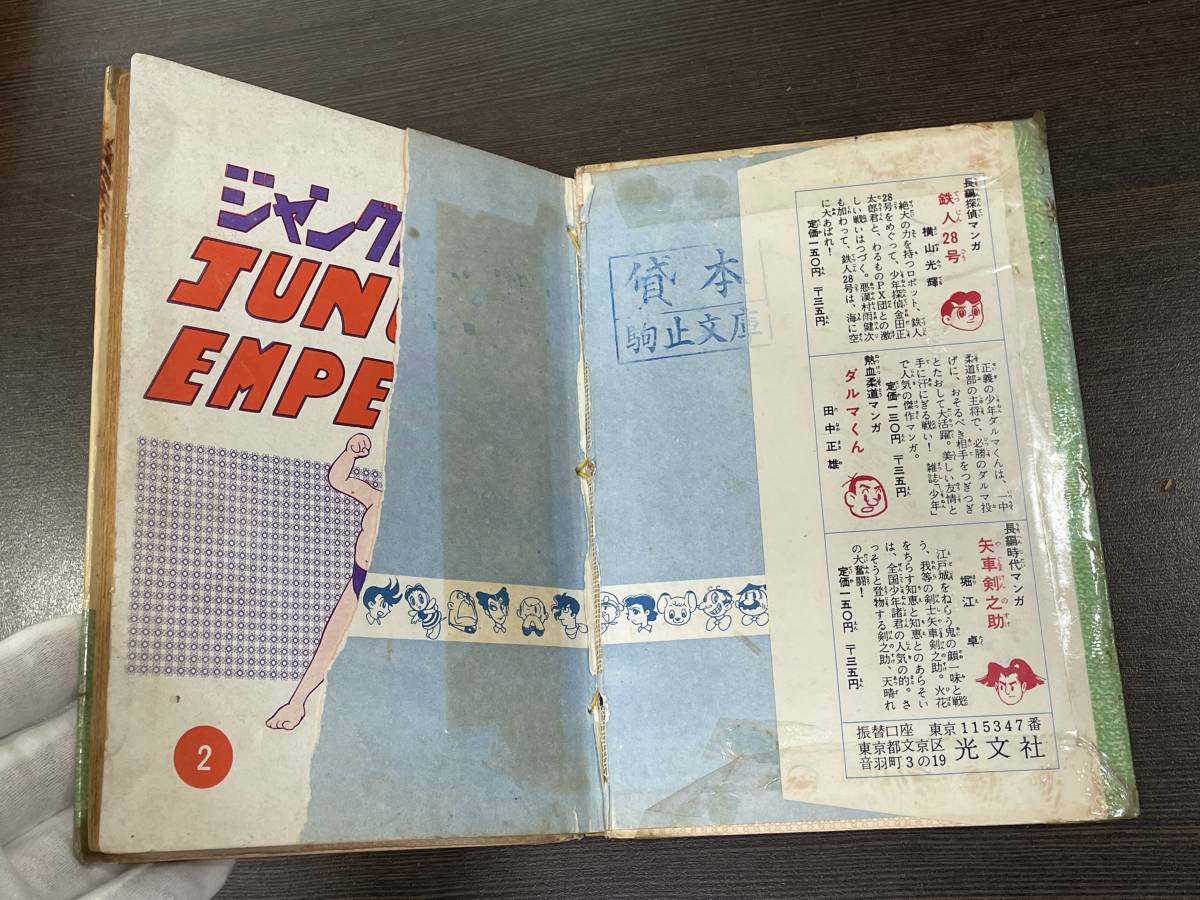 ジャング
JUN
EMPE
2
貸本
駒止文庫
長編探偵マンガ
鉄人28号
横山光輝
絶大の力を持つロボット、鉄人
28号をめぐって、少年探偵金田正
太郎君と、わるものPX団との激
しい戦いはつづく。悪漢村雨健次
も加わって、鉄人28号は、海に空
に大あばれ!
定価一五〇円 〒三五円
熱血柔道マンガ
ダルマくん
田中正雄
正義の少年ダルマくんは、一中
柔道部の主将で、必勝のダルマ投
げに、おそるべき相手をつぎつぎ
とたおして大活躍。美しい友情と
手に汗にぎる戦い! 雑誌「少年」
で人気の傑作マンガ。
定価一三〇円 〒三五円
長編時代マンガ
矢車剣之助
堀江卓
江戸城をねらう鬼の顔一味と戦
う、我等の剣士矢車剣之助。火花
をちらす知恵と知恵とのあらそい
は、全国少年諸君の人気の的。さ
っそうと登場する剣之助、天晴れ
の大奮闘!
定価一五〇円 〒三五円
振替口座 東京115347番
東京都文京区
音羽町3の19
光文社